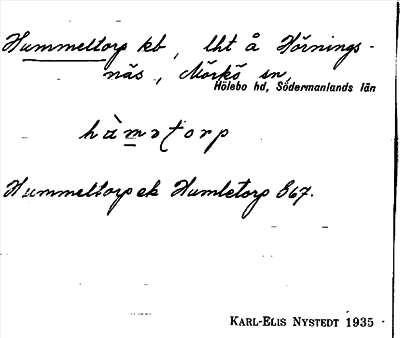 Hummeltorp kb, lht å Hörnings-
näs, Mörkö sn,
Hölebo hd, Södermanlands län
hàmətorp
Hummeltorp ek Humletorp 867.
KARL-ELIS NYSTEDT 1935